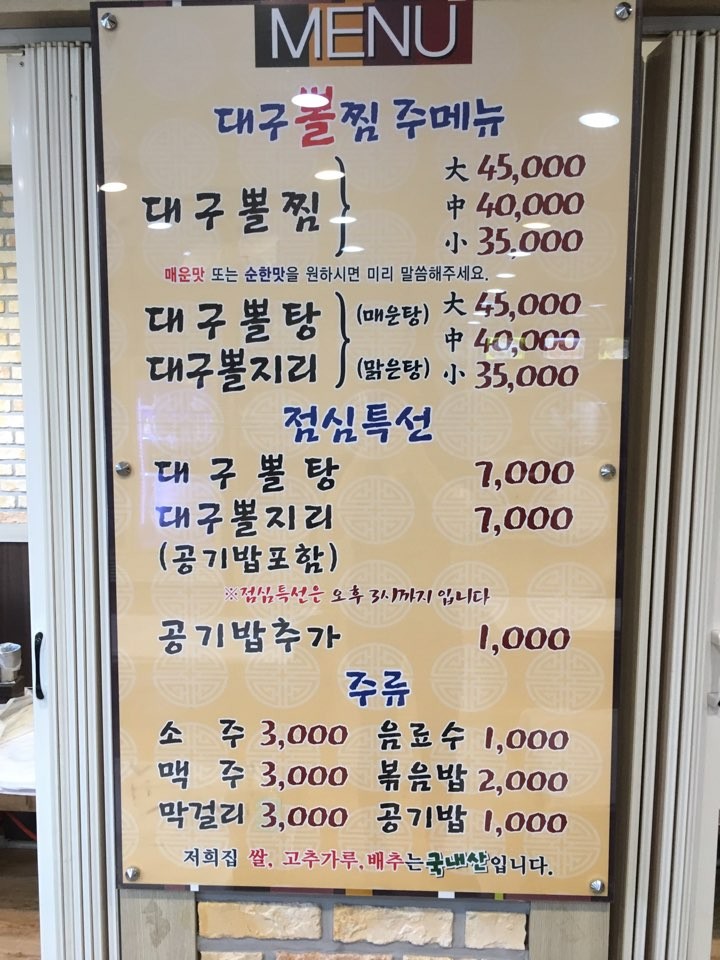 MENU
대구뽈찜 주메뉴
대구뽈찜
大 45,000
中 40,000
小 35,000
매운맛 또는 순한맛을 원하시면 미리 말씀해주세요.
대구뽈탕 (매운탕) 大 45,000
中 40,000
대구뽈지리 (맑은탕) 小 35,000
점심특선
대구뽈탕 7,000
대구뽈지리 7,000
(공기밥포함)
※점심특선은 오후 3시까지 입니다
공기밥추가 1,000
주류
소주 3,000 음료수 1,000
맥주 3,000 볶음밥 2,000
막걸리 3,000 공기밥 1,000
저희집 쌀, 고추가루, 배추는국내산입니다.